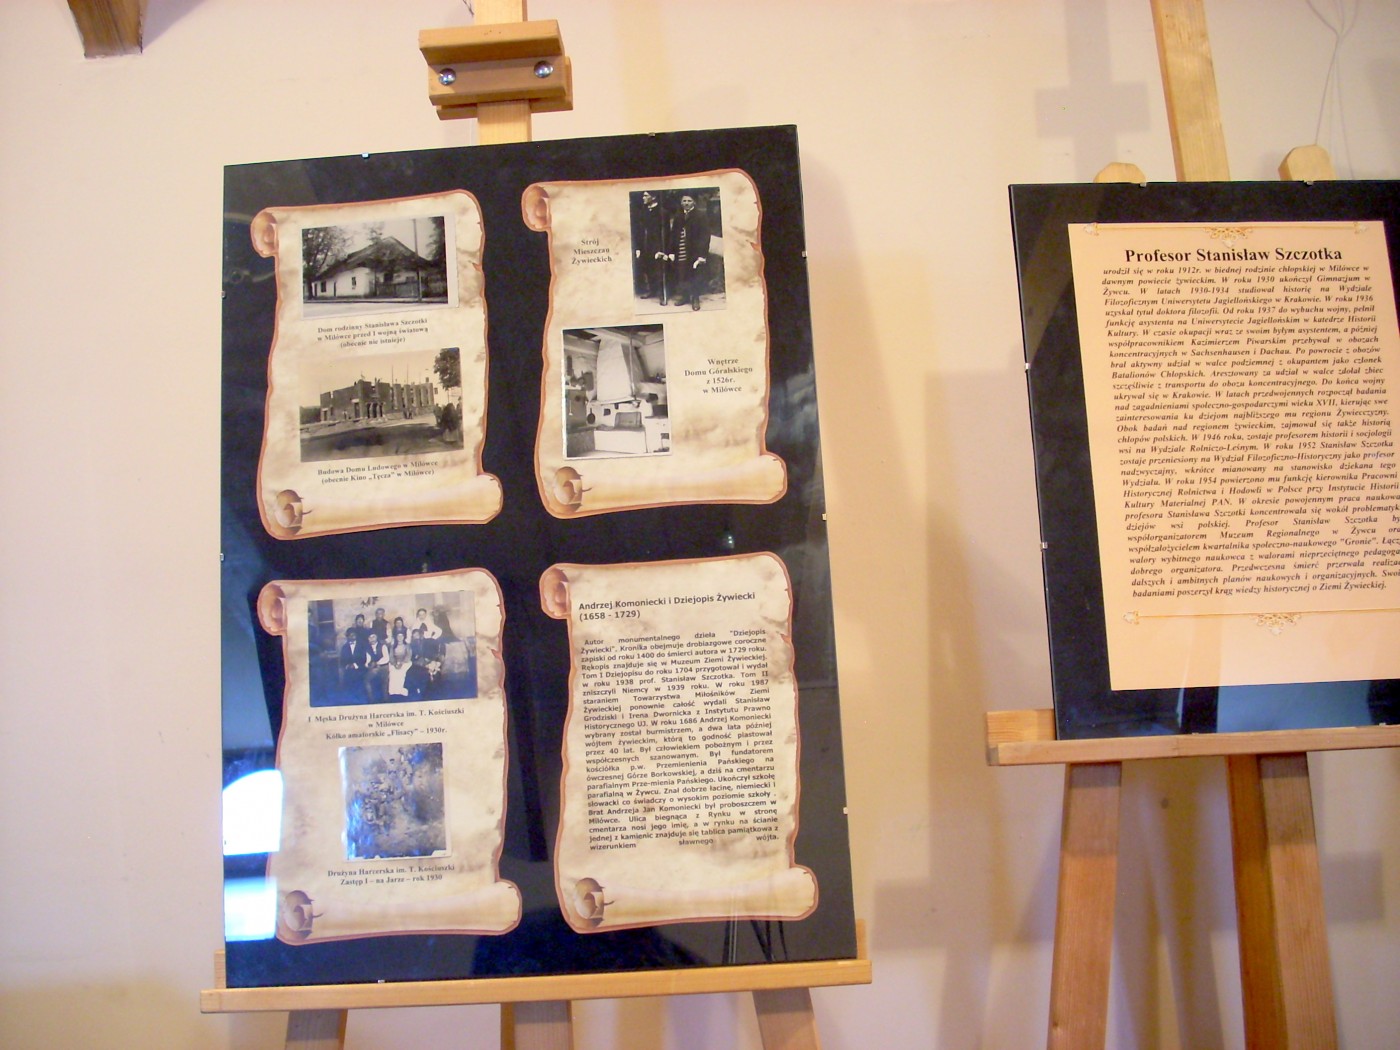 Dom rodzinny Stanisława Szczotki
w Milówce przed I wojną światową
(obecnie nie istnieje)
Budowa Domu Ludowego w Milówce
(obecnie Kino „Tęcza” w Milówce)
Strój
Mieszczan
Żywieckich
Wnętrze
Domu Góralskiego
z 1526r.
w Milówce
I Męska Drużyna Harcerska im. T. Kościuszki
w Milówce
Kółko amatorskie „Flisacy” – 1930r.
Drużyna Harcerska im. T. Kościuszki
Zastęp I – na Jarze – rok 1930
Andrzej Komoniecki i Dziejopis Żywiecki
(1658 - 1729)
Autor monumentalnego dzieła "Dziejopis
Żywiecki". Kronika obejmuje drobiazgowe coroczne
zapiski od roku 1400 do śmierci autora w 1729 roku.
Rękopis znajduje się w Muzeum Ziemi Żywieckiej.
Tom I Dziejopisu do roku 1704 przygotował i wydał
w roku 1938 prof. Stanisław Szczotka. Tom II
zniszczyli Niemcy w 1939 roku. W roku 1987
staraniem Towarzystwa Miłośników Ziemi
Żywieckiej ponownie całość wydali Stanisław
Grodziski i Irena Dwornicka z Instytutu Prawno
Historycznego UJ. W roku 1686 Andrzej Komoniecki
wybrany został burmistrzem, a dwa lata później
wójtem żywieckim, którą to godność piastował
przez 40 lat. Był człowiekiem pobożnym i przez
współczesnych szanowanym. Był fundatorem
kościółka p.w. Przemienienia Pańskiego na
ówczesnej Górze Borkowskiej, a dziś na cmentarzu
parafialnym Prze-mienia Pańskiego. Ukończył szkołę
parafialną w Żywcu. Znał dobrze łacinę, niemiecki i
słowacki co świadczy o wysokim poziomie szkoły .
Brat Andrzeja Jan Komoniecki był proboszczem w
Milówce. Ulica biegnąca z Rynku w stronę
cmentarza nosi jego imię, a w rynku na ścianie
jednej z kamienic znajduje się tablica pamiątkowa z
wizerunkiem sławnego wójta.
Profesor Stanisław Szczotka
urodził się w roku 1912r. w biednej rodzinie chłopskiej w Milówce w
dawnym powiecie żywieckim. W roku 1930 ukończył Gimnazjum w
Żywcu. W latach 1930-1934 studiował historię na Wydziale
Filozoficznym Uniwersytetu Jagiellońskiego w Krakowie. W roku 1936
uzyskał tytuł doktora filozofii. Od roku 1937 do wybuchu wojny, pełnił
funkcję asystenta na Uniwersytecie Jagiellońskim w katedrze Historii
Kultury. W czasie okupacji wraz ze swoim byłym asystentem, a później
współpracownikiem Kazimierzem Piwarskim przebywał w obozach
koncentracyjnych w Sachsenhausen i Dachau. Po powrocie z obozów
brał aktywny udział w walce podziemnej z okupantem jako członek
Batalionów Chłopskich. Aresztowany za udział w walce zdołał zbiec
szczęśliwie z transportu do obozu koncentracyjnego. Do końca wojny
ukrywał się w Krakowie. W latach przedwojennych rozpoczął badania
nad zagadnieniami społeczno-gospodarczymi wieku XVII, kierując swe
zainteresowania ku dziejom najbliższego mu regionu Żywiecczyzny.
Obok badań nad regionem żywieckim, zajmował się także historią
chłopów polskich. W 1946 roku, zostaje profesorem historii i socjologii
wsi na Wydziale Rolniczo-Leśnym. W roku 1952 Stanisław Szczotka
zostaje przeniesiony na Wydział Filozoficzno-Historyczny jako profesor
nadzwyczajny, wkrótce mianowany na stanowisko dziekana tego
Wydziału. W roku 1954 powierzono mu funkcję kierownika Pracowni
Historycznej Rolnictwa i Hodowli w Polsce przy Instytucie Historii
Kultury Materialnej PAN. W okresie powojennym praca naukowa
profesora Stanisława Szczotki koncentrowała się wokół problematyk
dziejów wsi polskiej. Profesor Stanisław Szczotka by
współorganizatorem Muzeum Regionalnego w Żywcu ora
współzałożycielem kwartalnika społeczno-naukowego "Gronie". Łącz
walory wybitnego naukowca z walorami nieprzeciętnego pedagoga
dobrego organizatora. Przedwczesna śmierć przerwała realizac
dalszych i ambitnych planów naukowych i organizacyjnych. Swoi
badaniami poszerzył krąg wiedzy historycznej o Ziemi Żywieckiej.